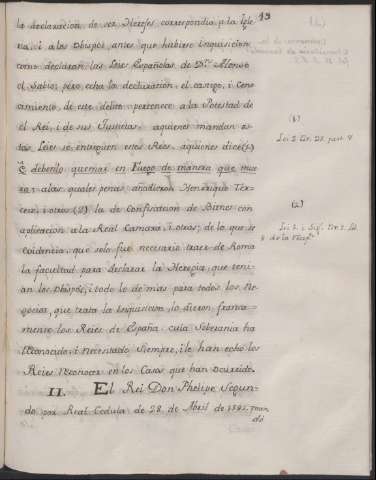 19
la declaracion de ser Hereges correspondia, a la Igle
sia, i a los Obispos, antes que hubiese inquisicion
como declaran las Leies Españolas de Dn. Alonso
el Sabio, pero echa la declaration, el castigo, i Cono
cimiento, de este delito, pertenece a la Potestad de
el Rei, i de sus Justicias, aquienes mandan es
tas Leies se entreguen estos Reos, aquiones dice (1)
q̃ debenlo quemar en Fuego de manera que mue
ra, i alas quales penas añadieron Henrique Ter-
cero, i otros (2) la de Confiscacion de Bienes con
aplicacion ala Real Camara, i otros; de lo que se
evidencia, que solo fue necesario traer de Roma
la facultad para declarar la Heregia, que teni-
an los Obispos, i todo lo demas para todos los Ne-
gocios, que trata la Inquisicion, lo dieron franca-
mente los Reies de España, cuia Soberania ha
Reconocido, i necesitado Siempre, i le han echo los
Reies Reconocer en los Casos que han Ocurrido.
II. El Rei Don Phelipe Segun-
do por Real Cedula de 28. de Abril de man
dó
(1)
Lei 2. tit. 26. part. 7
(2)
Lei 1. i Sig. tit. 3. Lib.
8 de la Recopn.